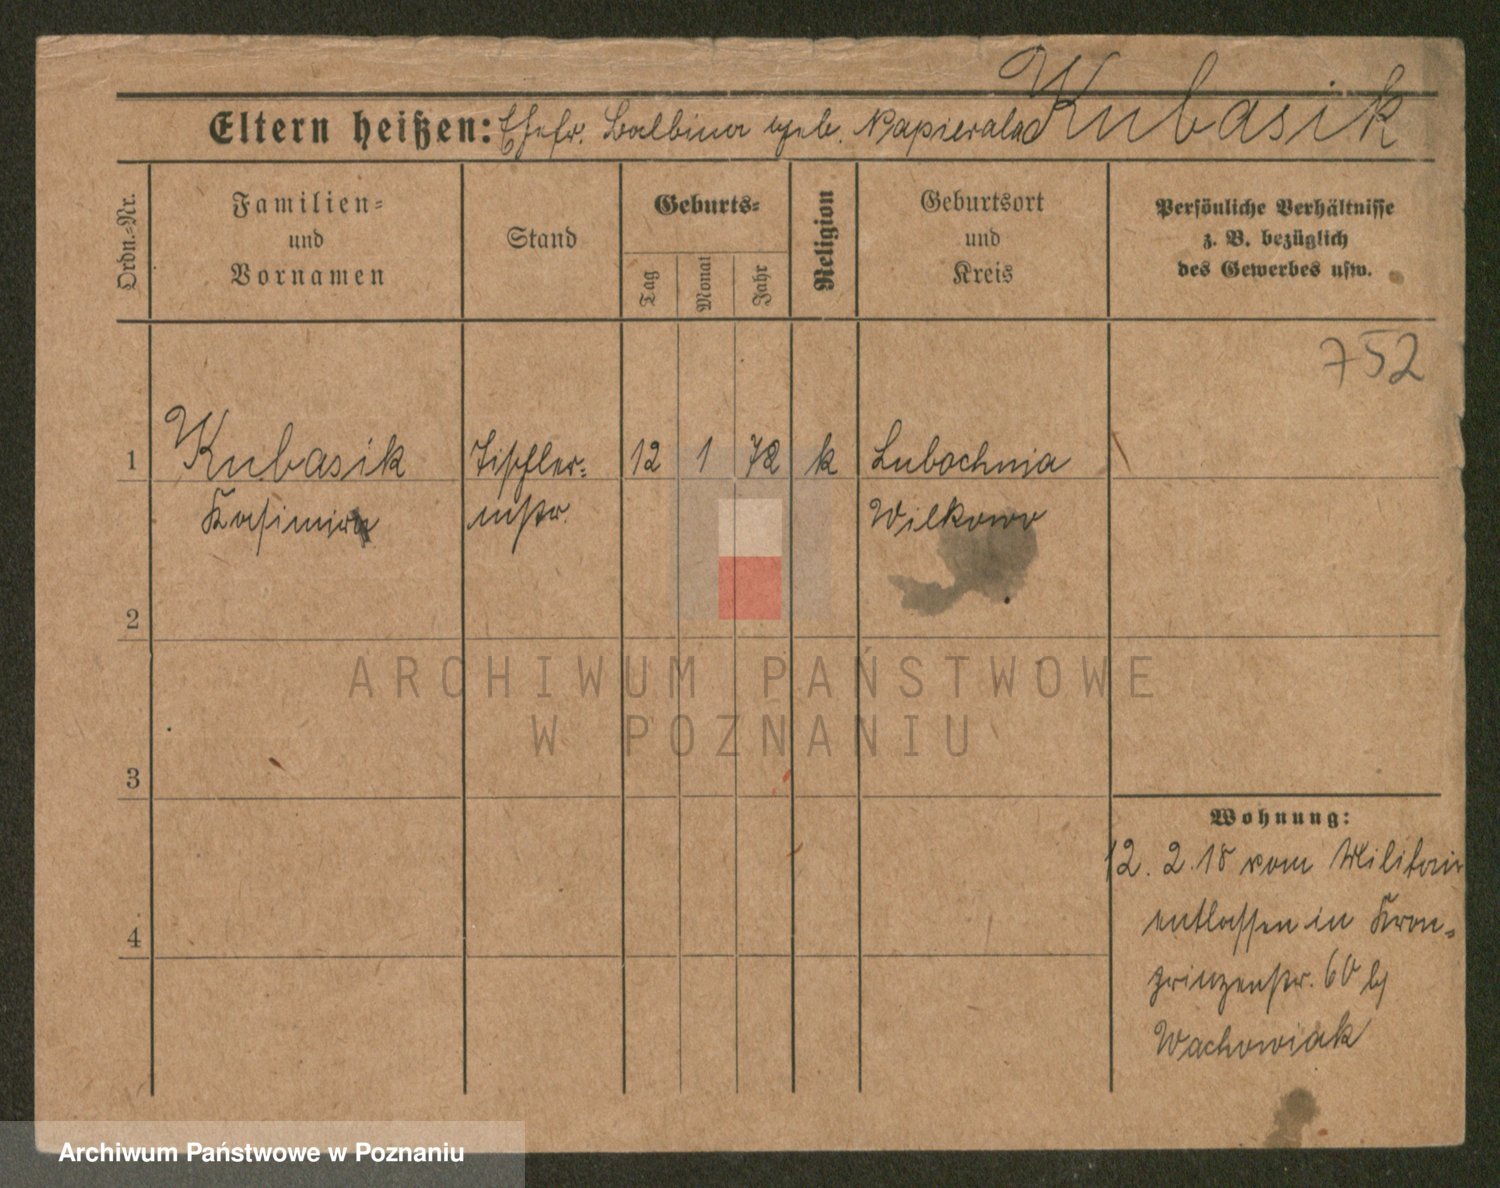 Kubasik
Eltern heißen: Ehefr. Balbina geb. Napierala
Ordn.-Nr.
Familien-
und
Vornamen
Stand
Geburts-
Tag
Monat
Jahr
Religion
Geburtsort
und
Kreis
Persönliche Verhältnisse
z. B. bezüglich
des Gewerbes usw.
752
1 Kubasik Tischler- 12 1 72 k Lubochnia
Kasimir mstr. Wilkowo
2
3
4
Wohnung:
12. 2. 18 vom Militair
entlassen in Kron-
prinzenstr. 60 b/
Wachowiak
ARCHIWUM PAŃSTWOWE
W POZNANIU
Archiwum Państwowe w Poznaniu